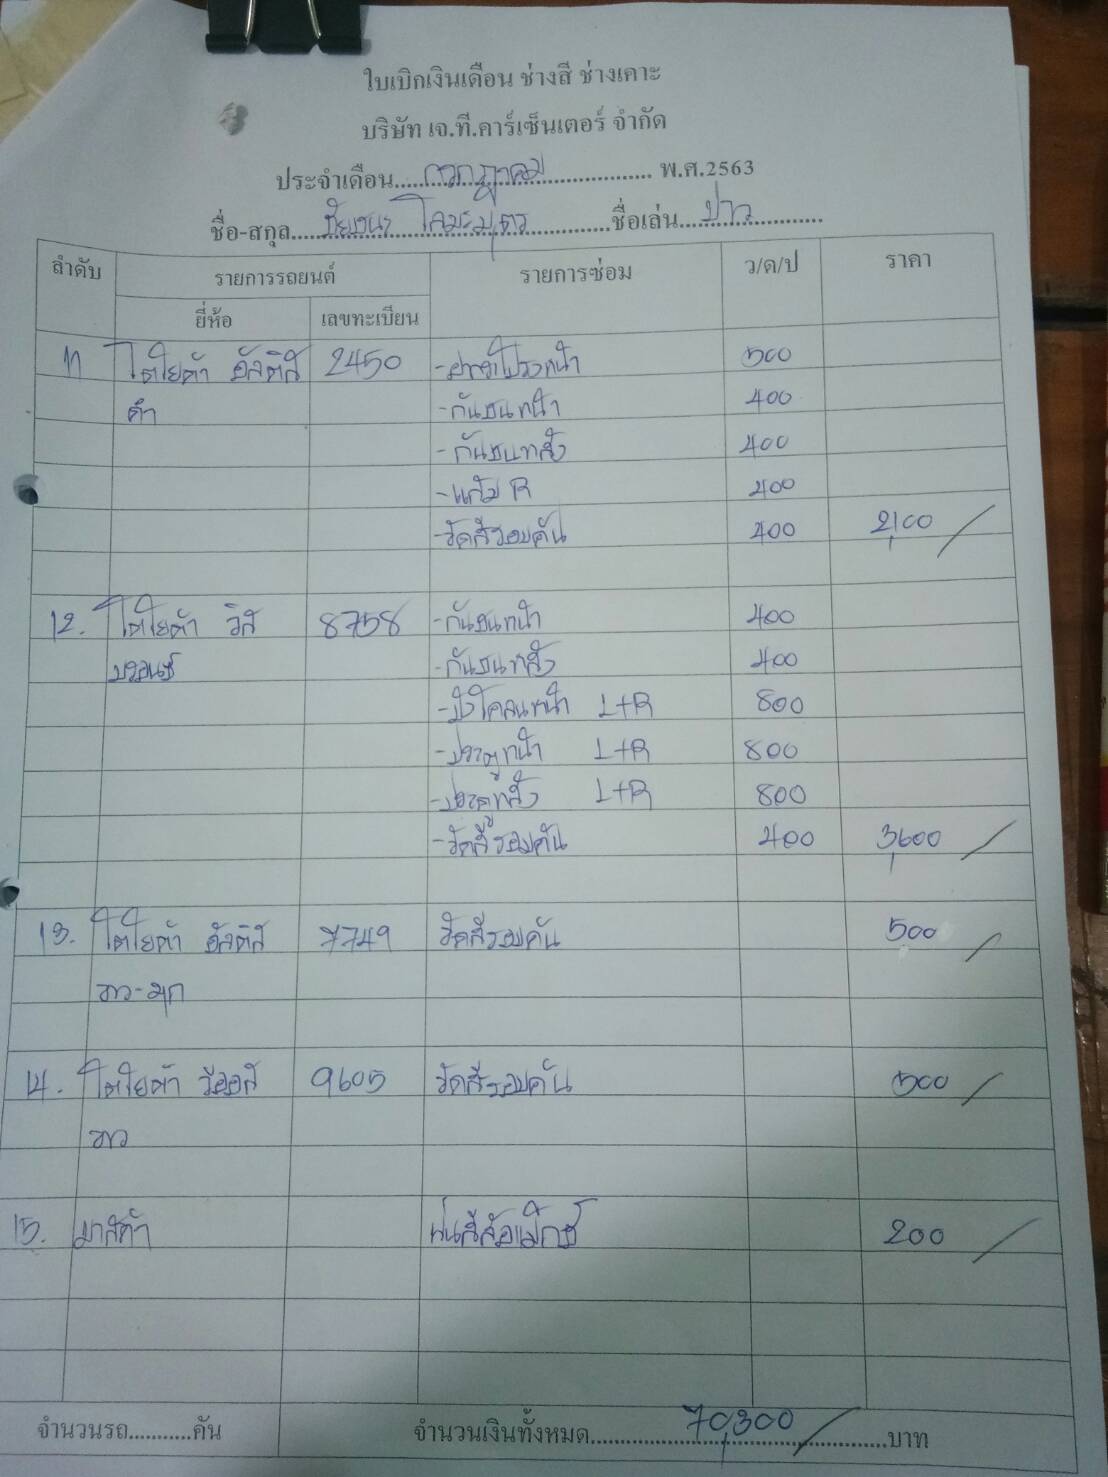 ใบเบิกเงินเดือน ช่างสี ช่างเคาะ
บริษัท เจ.ที.คาร์เซ็นเตอร์ จำกัด
ประจำเดือน.....กรกฎาคม.....พ.ศ.2563
ชื่อ-สกุล.....ชัยชนะ โคมะบุตร.....ชื่อเล่น.....บ่าว.....
ลำดับ รายการรถยนต์ รายการซ่อม ว/ด/ป ราคา
ยี่ห้อ เลขทะเบียน
11 โตโยต้า อัลติส 2450 -ฝากระโปรงหน้า 500
ดำ -กันชนหน้า 400
-กันชนหลัง 400
-แก้ม R 400
-ขัดสีรอบคัน 400 2,100
12. โตโยต้า วีส 8758 -กันชนหน้า 400
บรอนซ์ -กันชนหลัง 400
-บังโคลนหน้า L+R 800
-ประตูหน้า L+R 800
-ประตูหลัง L+R 800
-ขัดสีรอบคัน 400 3,600
13. โตโยต้า อัลติส 7749 ขัดสีรอบคัน 500
ขาว-มุก
14. โตโยต้า วีออส 9605 ขัดสีรอบคัน 500
ขาว
15. มาสด้า พ่นสีล้อแม็กซ์ 200
จำนวนรถ...........คัน จำนวนเงินทั้งหมด.....70,300.....บาท